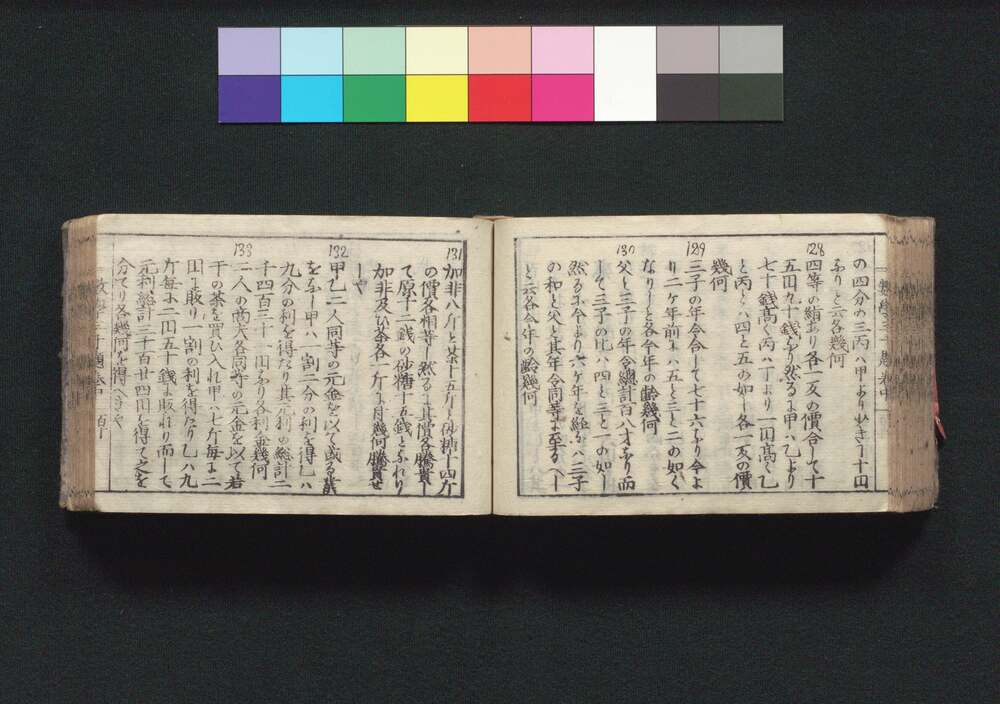 の四分の三丙ハ甲より少きこと十四
なりと云各幾何
128
四等の絹あり各一反の價合して十
五円九十銭なり然るに甲ハ乙より
七十銭高く丙ハ丁より一円高く乙
と丙とハ四と五の如し各一反の價
幾何
129
三子の年令合して七十六なり今よ
り二ケ年前にハ五と三と二の如く
なりしと各今年の齢幾何
130
父と三子の年令總計百八才なり而
して三子の比ハ四と三と一の如し
然るに今より六ケ年を経れハ三子
の和と父と其年令同等に至るへし
と云各今年の齢幾何
131
加非八斤と茶十五斤と砂糖十四斤
の價各相等し然るに其價各騰貴し
て原十二銭の砂糖十五銭となれり
加非及ひ茶各一斤に月幾何騰貴せ
しや
132
甲乙二人同等の元金を以て或る業
をなし甲ハ一割二分の利を得乙ハ
九分の利を得たり其元利の総計二
千四百三十一円なり各利金幾何
133
二人の商人各同等の元金を以て若
干の茶を買ひ入れ甲ハ七斤毎に二
円に販り一割の利を得たり乙ハ九
斤毎に二円五十銭に販れり而して
元利総計三千百廿四円を得て之を
分てり各幾何を得へきや
數學三千題 卷中